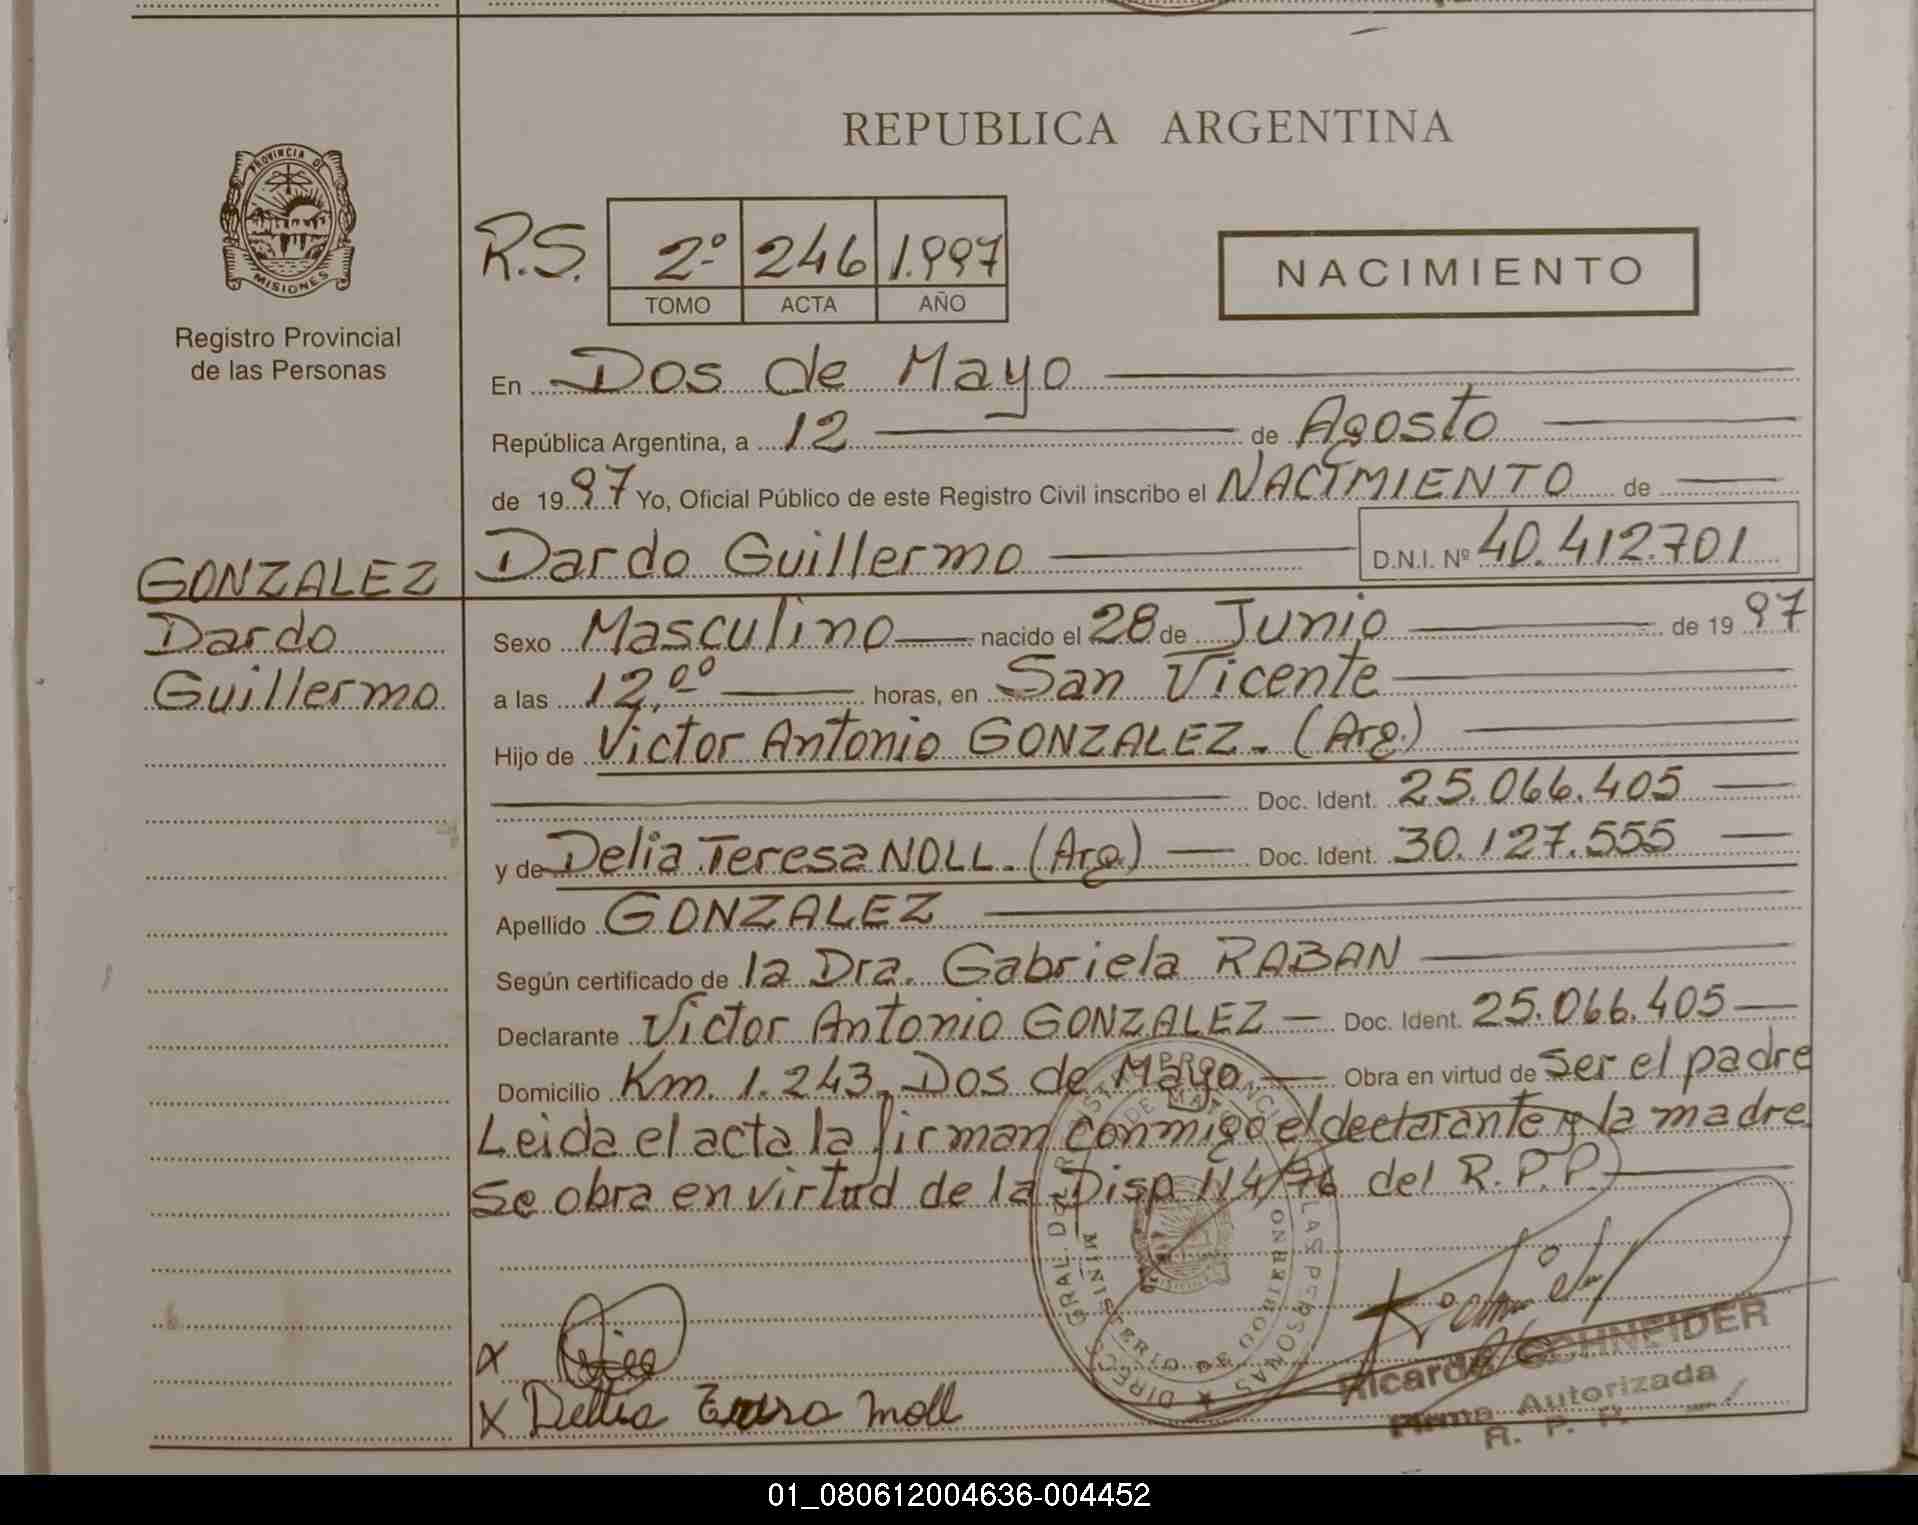 REPUBLICA ARGENTINA
PROVINCIA DE
MISIONES
Registro Provincial
de las Personas
R.S. 2º 246 1.997
TOMO ACTA AÑO
NACIMIENTO
En Dos de Mayo
República Argentina, a 12 de Agosto
de 1997 Yo, Oficial Público de este Registro Civil inscribo el NACIMIENTO de
GONZALEZ
Dardo
Guillermo
Dardo Guillermo D.N.I. Nº 40.412.701
Sexo Masculino nacido el 28 de Junio de 1997
a las 12,00 horas, en San Vicente
Hijo de Victor Antonio GONZALEZ. (Arg.)
Doc. Ident. 25.066.405
y de Delia Teresa NOLL. (Arg.) Doc. Ident. 30.127.555
Apellido GONZALEZ
Según certificado de la Dra. Gabriela RABAN
Declarante Victor Antonio GONZALEZ Doc. Ident. 25.066.405
Domicilio Km. 1.243, Dos de Mayo. Obra en virtud de ser el padre
Leida el acta la firman conmigo el declarante y la madre
se obra en virtud de la Disp 114/96 del R.P.P.
MINISTERIO DE GOBIERNO
X
X Dellia moll
Ricardo SCHNEIDER
Firma Autorizada
R. P. P.
01_080612004636-004452